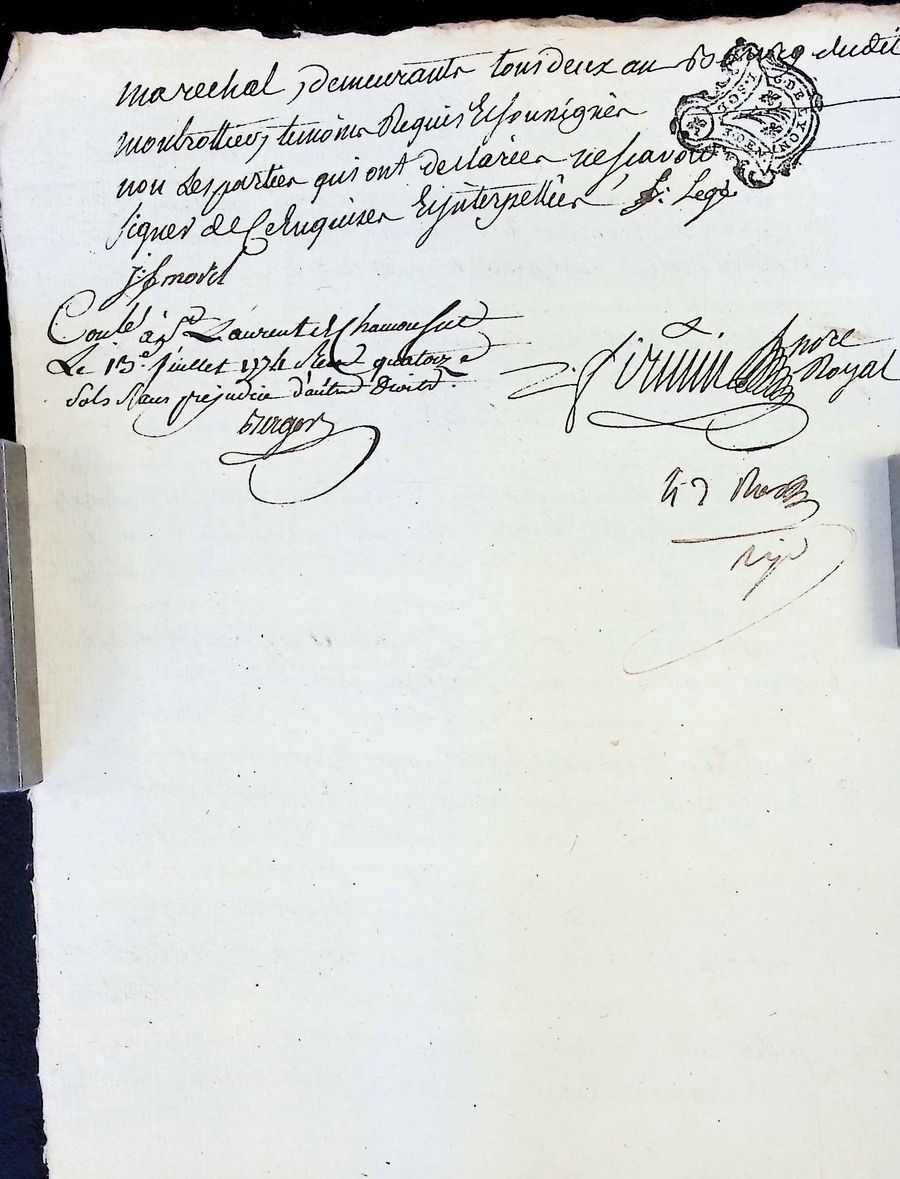 marechal, demeurants tous deux au Bourg dudit
montrottier, temoins Requis Et soussignés
non Les parties qui ont declarées ne scavoir
signer de Ce Enquises Et interpellées F: Legd
j: f morel
G. DE LYON
1. SOL
Conlé à St Laurent de Chamousset
Le 13e juillet 1774 Reçu quatorze
sols sans prejudice d'autre Droits.
Firmin nore
Royal